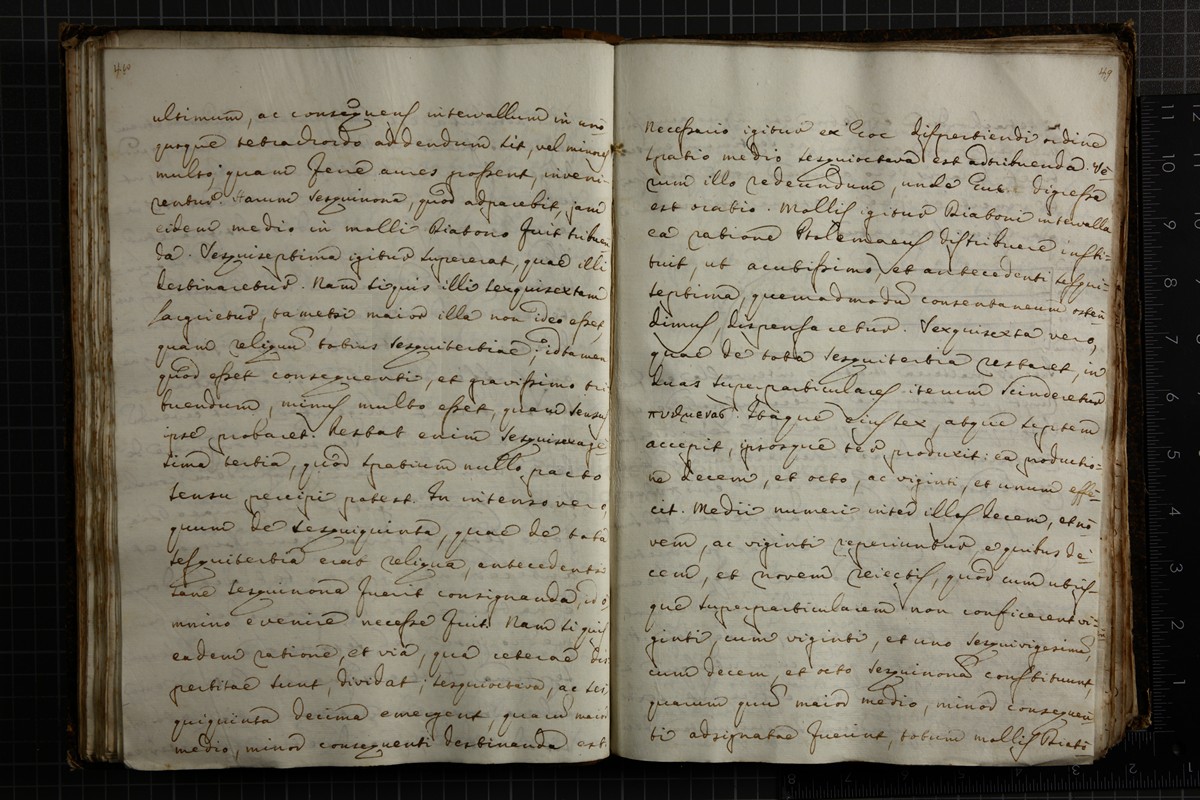 48
ultimum, ac consequens intervallum in uno
quoque tetrachordo addendum sit, vel minores
multo, quam ferre aures possent, inveni-
rentur. Harum sesquinona, quod adparebit, jam
eidem medio in molli Diatono fuit tribuen
da. Sesquiseptima igitur supererat, quae illi
destinaretur. Nam siquis illi sexquisextam
largietur, tametsi maior illa non ideo esset,
quam reliquum totius sesquitertiae: id tamen
quod esset consequenti, et gravissimo tri
buendum, minus multo esset, quam sensus
ipse probaret. Restat enim sesquisexage
sima tertia, quod spatium nullo pacto
sensu percipi potest. In intenso vero,
quum de sesquiquinta, quae de tota
sesquitertia erat reliqua, antecedenti
sane sesquinona fuerit consignanda, id o
mnino evenire necesse fuit. Nam si quis
eadem ratione, et via, qua ceterae dis
pertitae sunt, dividat; sesquioctava, ac ses
quiquinta decima emergent quarum maior
medio, minor consequenti destinanda est.
49
Necessario igitur ex hoc dispertiendi ordine
spatio medio sesquioctava est adtribuenda. Ve
rum illo redeundum, unde huc digressa
est oratio. Mollis igitur Diatoni intervalla
ea ratione Ptolemaeus distribuere insti-
tuit, ut acutissimo, et antecedenti sesqui-
septima, quemadmodum consentaneum osten
dimus, dispensaretur. Sexquisexta vero,
quae de tota sesquitertia restaret, in
duas superparticulares iterum scinderetur
πυθμενας. Itaque eius sex, atque septem
accepit, ipsosque ter produxit: ea productio-
ne decem, et octo, ac viginti, et unum effi-
cit. Medii numeri inter illos decem, et no
vem, ac viginti reperiuntur, e quibus de-
cem, et novem reiectis, quod cum utris-
que superparticularem non conficerent vi-
ginti, cum viginti, et uno sesquivigesima,
cum decem, et octo sesquinona constituunt,
quarum quum maior medio, minor consequen
ti adsignatae fuerint, totum mollis Diato